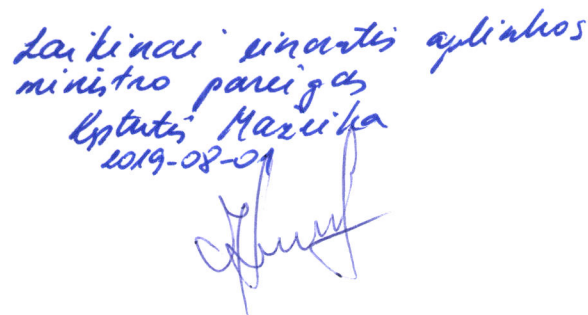 Laikinai einantis aplinkos
ministro pareigas
Kęstutis Mažeika
2019-08-01